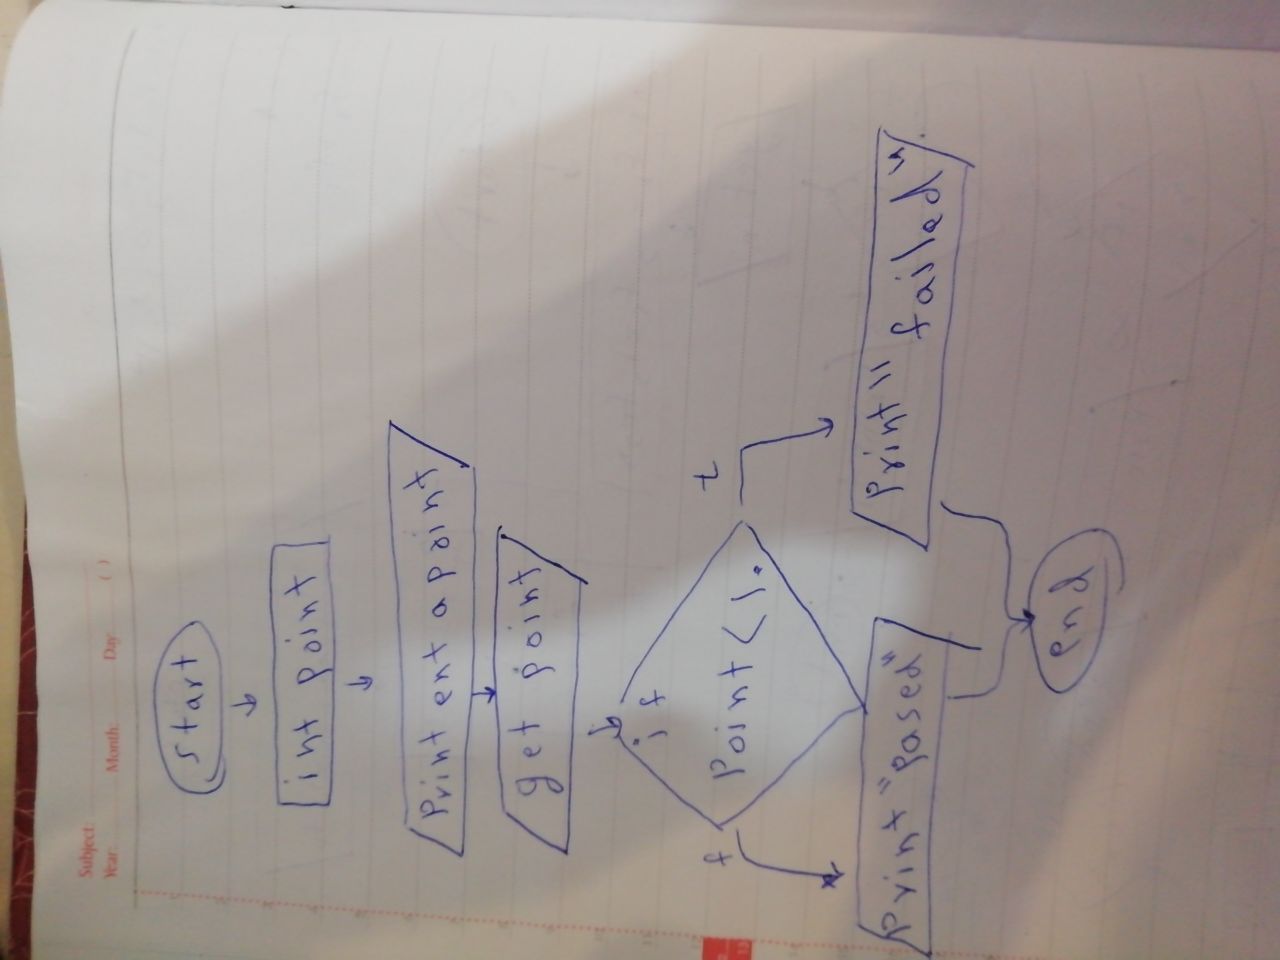 Subject:
Year: Month: Day: ( )
start
int point
print ent a point
get point
if
point < 1.
f
t
print "pased"
print "failed"
end